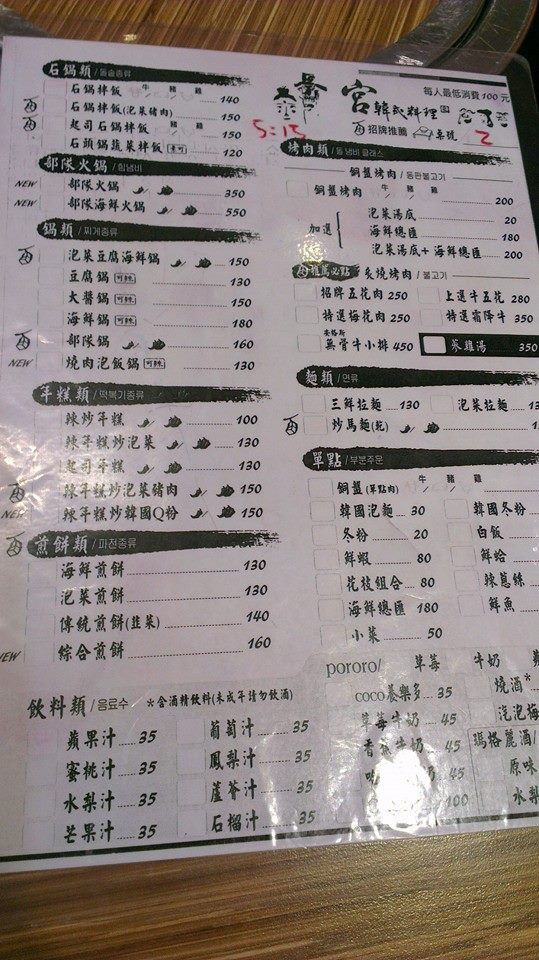 石鍋類 / 돌솥종류
石鍋拌飯 牛 豬 雞 140
石鍋拌飯(泡菜豬肉) 150
起司石鍋拌飯 豬 雞 150
石頭鍋蔬菜拌飯 120
部隊火鍋
NEW 部隊火鍋 350
NEW 部隊海鮮火鍋 550
鍋類 / 찌개종류
泡菜豆腐海鮮鍋 150
豆腐鍋 可辣 130
大醬鍋 可辣 150
海鮮鍋 可辣 180
部隊鍋 160
NEW 燒肉泡飯鍋 可辣 130
年糕類 / 떡볶기종류
辣炒年糕 100
辣年糕炒泡菜 130
起司年糕 130
辣年糕炒泡菜豬肉 150
NEW 辣年糕炒韓國Q粉 150
煎餅類 / 파전종류
海鮮煎餅 130
泡菜煎餅 130
傳統煎餅(韭菜) 140
NEW 綜合煎餅 160
飲料類 / 음료수 *含酒精飲料(未成年請勿飲酒)
蘋果汁 35
蜜桃汁 35
水梨汁 35
芒果汁 35
葡萄汁 35
鳳梨汁 35
蘆薈汁 35
石榴汁 35
宮 韓式料理
每人最低消費100元
招牌推薦 桌號 2
5:15
烤肉類
銅盤烤肉 / 동판불고기
銅盤烤肉 牛 豬 雞 200
加選
泡菜湯底 20
海鮮總匯 180
泡菜湯底+海鮮總匯 200
炙燒烤肉 / 불고기
招牌五花肉 250
上選牛五花 280
特選梅花肉 250
特選霜降牛 350
無骨牛小排 450
蔘雞湯 350
麵類 / 면류
三鮮拉麵 130
泡菜拉麵
炒馬麵(乾)
單點 / 부분주문
銅盤(單點肉) 牛 豬 雞
韓國泡麵 30
韓國冬粉
冬粉 20
白飯
鮮蝦 80
鮮蛤
花枝組合 80
辣蔥絲
海鮮總匯 180
鮮魚
小菜 50
pororo/ 草莓 牛奶
coco養樂多 35
燒酒*
草莓牛奶 45
香蕉牛奶 45
瑪格麗酒/
45
原味
100
水梨